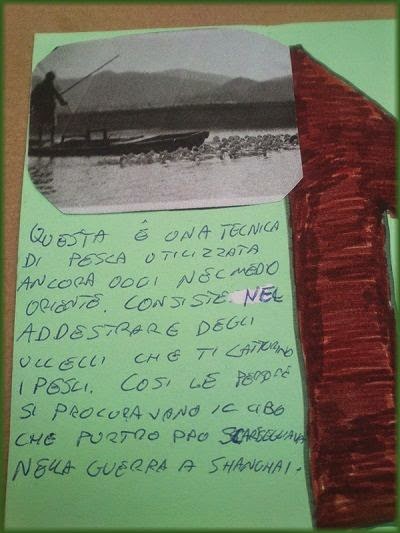 QUESTA È UNA TECNICA
DI PESCA UTILIZZATA
ANCORA OGGI NEL MEDO
ORIENTE. CONSISTE NEL
ADDESTRARE DEGLI
UCCELLI CHE TI CATTURINO
I PESCI. COSI LE PERSONE
SI PROCURAVANO IL CIBO
CHE PURTRO PPO SCARSEGGIAVA
NELLA GUERRA A SHANGHAI.